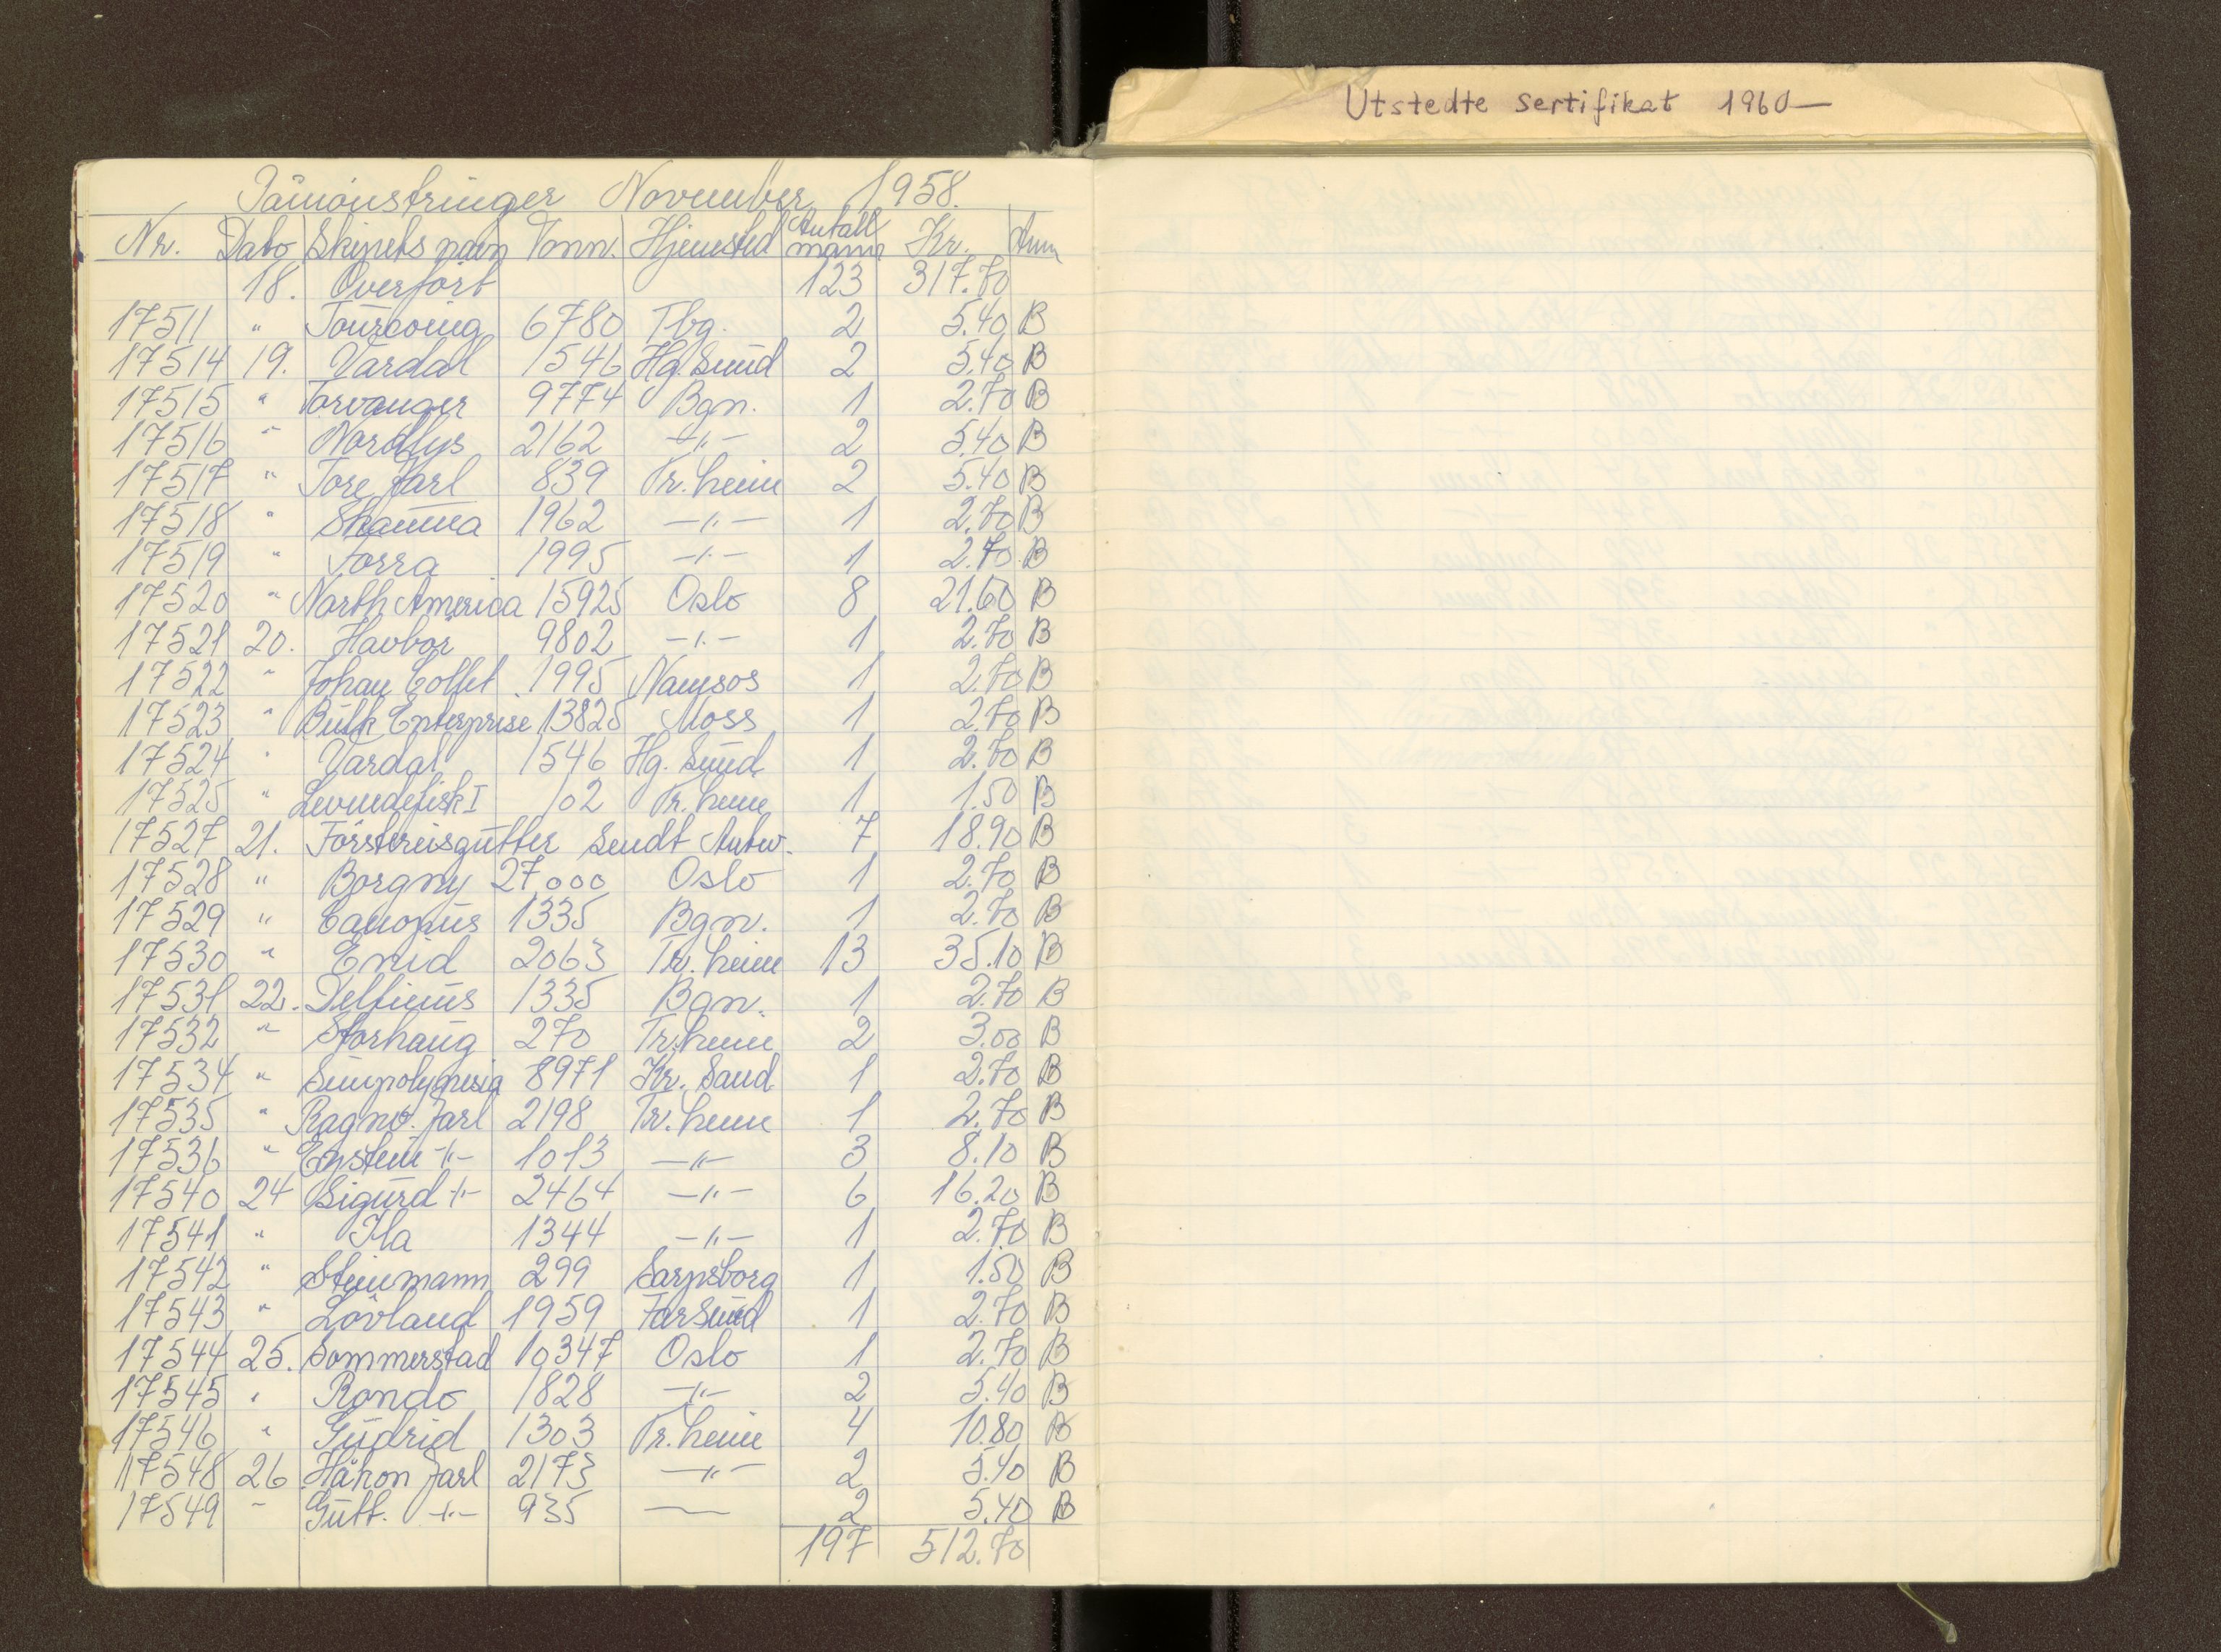 Påmönstringer November 1958.
Nr. Dato Skipets navn Tonn. Hjemsted Antall mann Kr. Anm
18. Overfört 123 317.70
17511 " Tourcoing 6780 Tbg. 2 5.40 B
17514 19. Vardal 1546 Hg. Sund 2 5.40 B
17515 " Torvanger 9774 Bgn. 1 2.70 B
17516 " Nordlys 2162 -"- 2 5.40 B
17517 " Tore Jarl 839 Tr. heim 2 5.40 B
17518 " Skauma 1962 -"- 1 2.70 B
17519 " Forra 1995 -"- 1 2.70 B
17520 " North America 15925 Oslo 8 21.60 B
17521 20. Havbör 9802 -"- 1 2.70 B
17522 " Johan Collet 1995 Namsos 1 2.70 B
17523 " Bulk Enterprise 13825 Moss 1 2.70 B
17524 " Vardal 1546 Hg. Sund 1 2.70 B
17525 " Levendefisk I 102 Tr. heim 1 1.50 B
17527 21. Förstereisgutter sendt Antw. 7 18.90 B
17528 " Borgny 27000 Oslo 1 2.70 B
17529 " Canopus 1335 Bgn. 1 2.70 B
17530 " Enid 2063 Tr. heim 13 35.10 B
17531 22. Delfinus 1335 Bgn. 1 2.70 B
17532 " Storhaug 270 Tr. heim 2 3.00 B
17534 " Sunpolynesia 8971 Kr. Sand 1 2.70 B
17535 " Ragnv. Jarl 2198 Tr. heim 1 2.70 B
17536 " Eystein -"- 1013 -"- 3 8.10 B
17540 24 Sigurd -"- 2464 -"- 6 16.20 B
17541 " Ila 1344 -"- 1 2.70 B
17542 " Steinmann 299 Sarpsborg 1 1.50 B
17543 " Lövland 1959 Farsund 1 2.70 B
17544 25. Sommerstad 10347 Oslo 1 2.70 B
17545 " Rondo 1828 -"- 2 5.40 B
17546 " Gudrid 1303 Tr. heim 4 10.80 B
17548 26 Håkon Jarl 2173 -"- 2 5.40 B
17549 " Gutt. -"- 935 — 2 5.40 B
197 512.70
Utstedte sertifikat 1960—